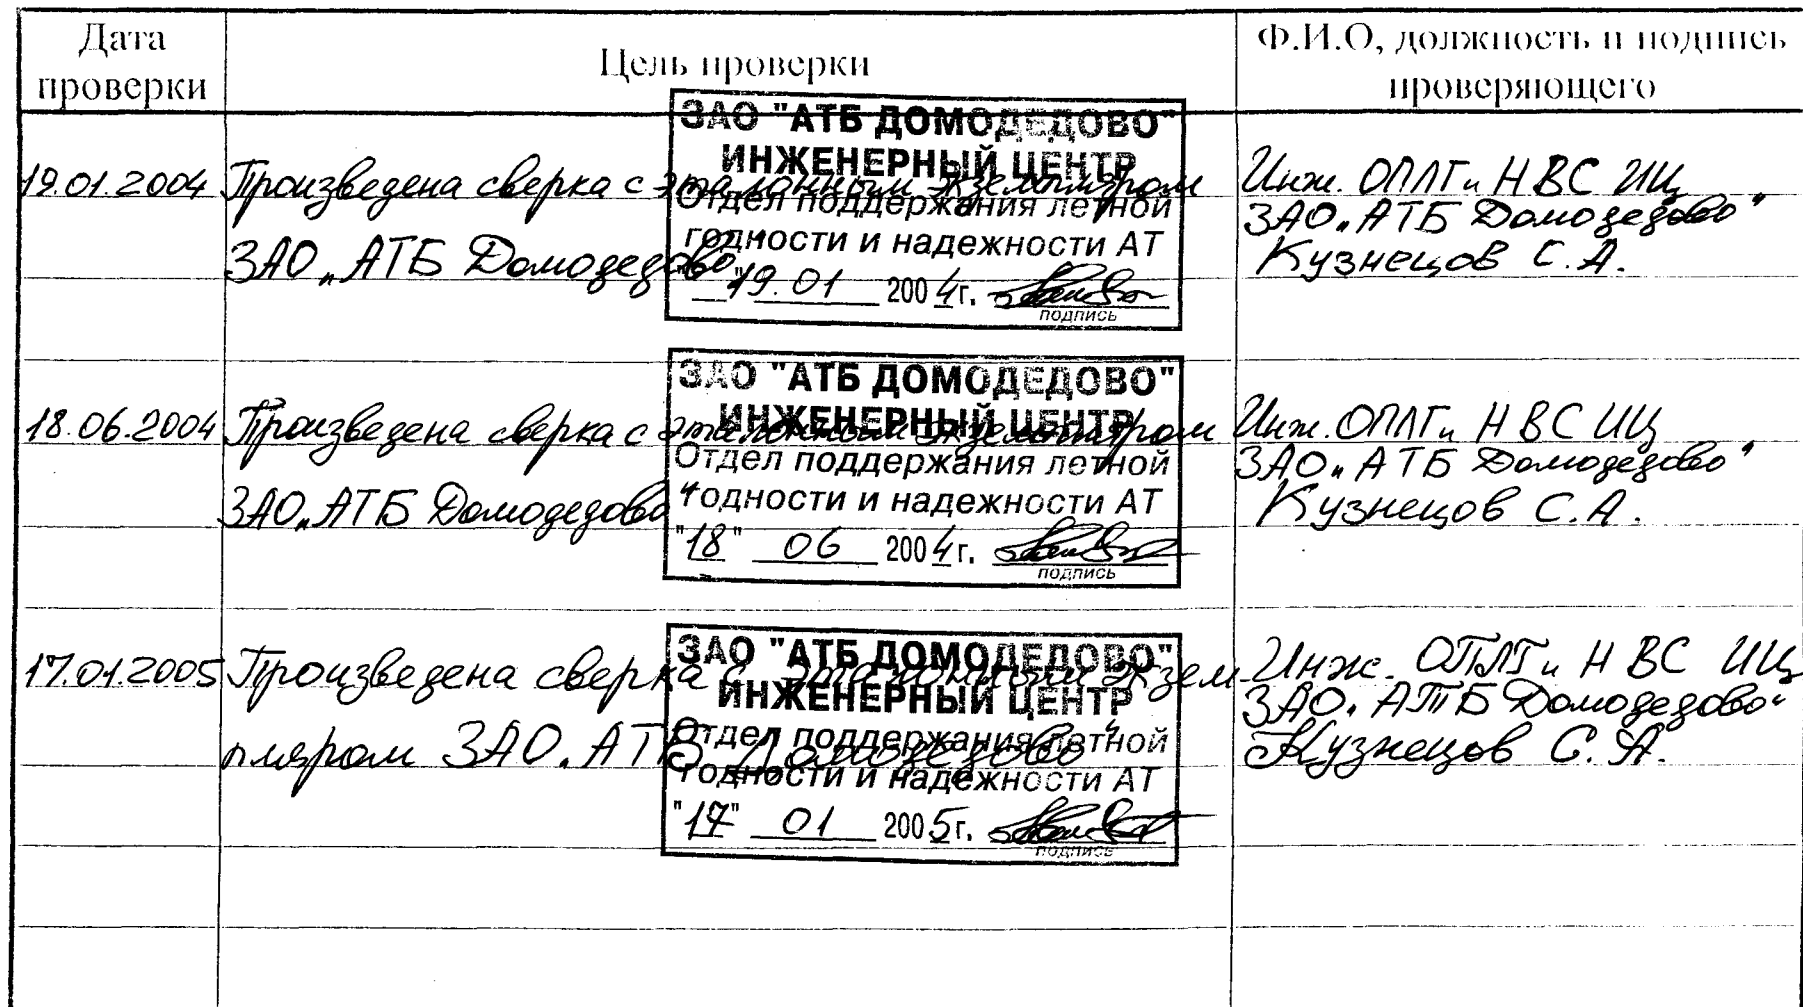 Дата
проверки
Цель проверки
Ф.И.О, должность и подпись
проверяющего
19.01.2004
Произведена сверка с эталонным экземпляром
ЗАО „АТБ Домодедово"
ЗАО "АТБ ДОМОДЕДОВО"
ИНЖЕНЕРНЫЙ ЦЕНТР
Отдел поддержания летной
годности и надежности АТ
"19. 01 2004г.
подпись
Инж. ОПЛГ и НВС ИЦ
ЗАО „АТБ Домодедово"
Кузнецов С.А.
18.06.2004
Произведена сверка с эталонным экземпляром
ЗАО „АТБ Домодедово"
ЗАО "АТБ ДОМОДЕДОВО"
ИНЖЕНЕРНЫЙ ЦЕНТР
Отдел поддержания летной
годности и надежности АТ
"18" 06 2004г.
подпись
Инж. ОПЛГ и НВС ИЦ
ЗАО „АТБ Домодедово"
Кузнецов С.А.
17.01.2005
Произведена сверка с эталонным экзем-
пляром ЗАО „АТБ Домодедово"
ЗАО "АТБ ДОМОДЕДОВО"
ИНЖЕНЕРНЫЙ ЦЕНТР
Отдел поддержания летной
годности и надежности АТ
"17" 01 2005г.
подпись
Инж. ОПЛГ и НВС ИЦ
ЗАО „АТБ Домодедово"
Кузнецов С.А.